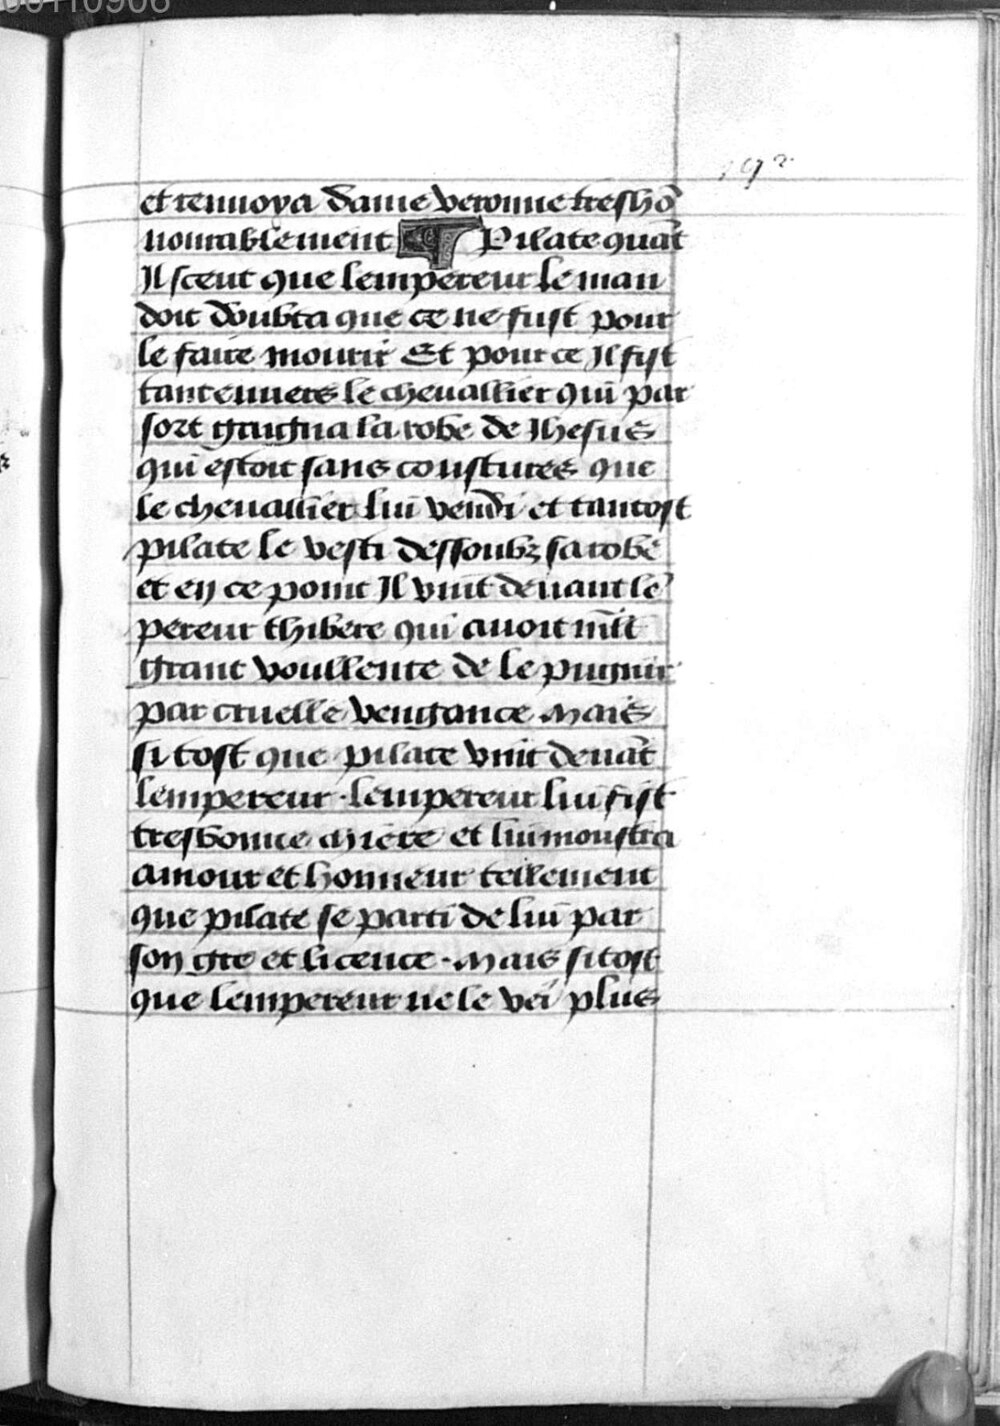 00110906
192
et renuoya dame veronne tresho᷑
nourablement ¶ Pilate qua᷑t
Il sceut que lempereur le man
doit doubta que ce ne fust pour
le faire mourir Et pour ce Il fist
tant enuers le cheuallier qui par
sort gaigna la robe de Ihesus
qui estoit sans coustures que
le cheuallier lui vendi et tantost
pilate le vesti dessoubz sa robe
et en ce point Il vint deuant le᷑
pereur thibere qui auoit m̅lt
grant voullente de le pugnir
par cruelle vengance Mais
si tost que pilate vint deua᷑t
lempereur · lempereur lui fist
tresbonne chiere et lui moustra
amour et honneur tellement
que pilate se parti de lui par
son gre et licence · Mais si tost
que lempereur ne le vei plus